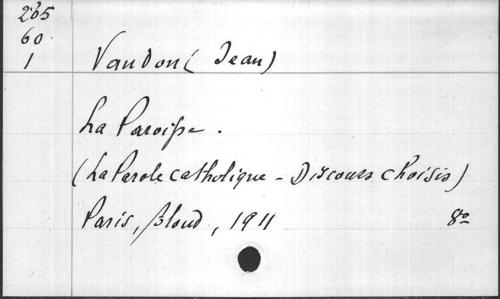 265
60
1
Vaudon (Jean)
La Paroisse.
(La Parole catholique - Discours choisis)
Paris, Bloud, 1911 8º